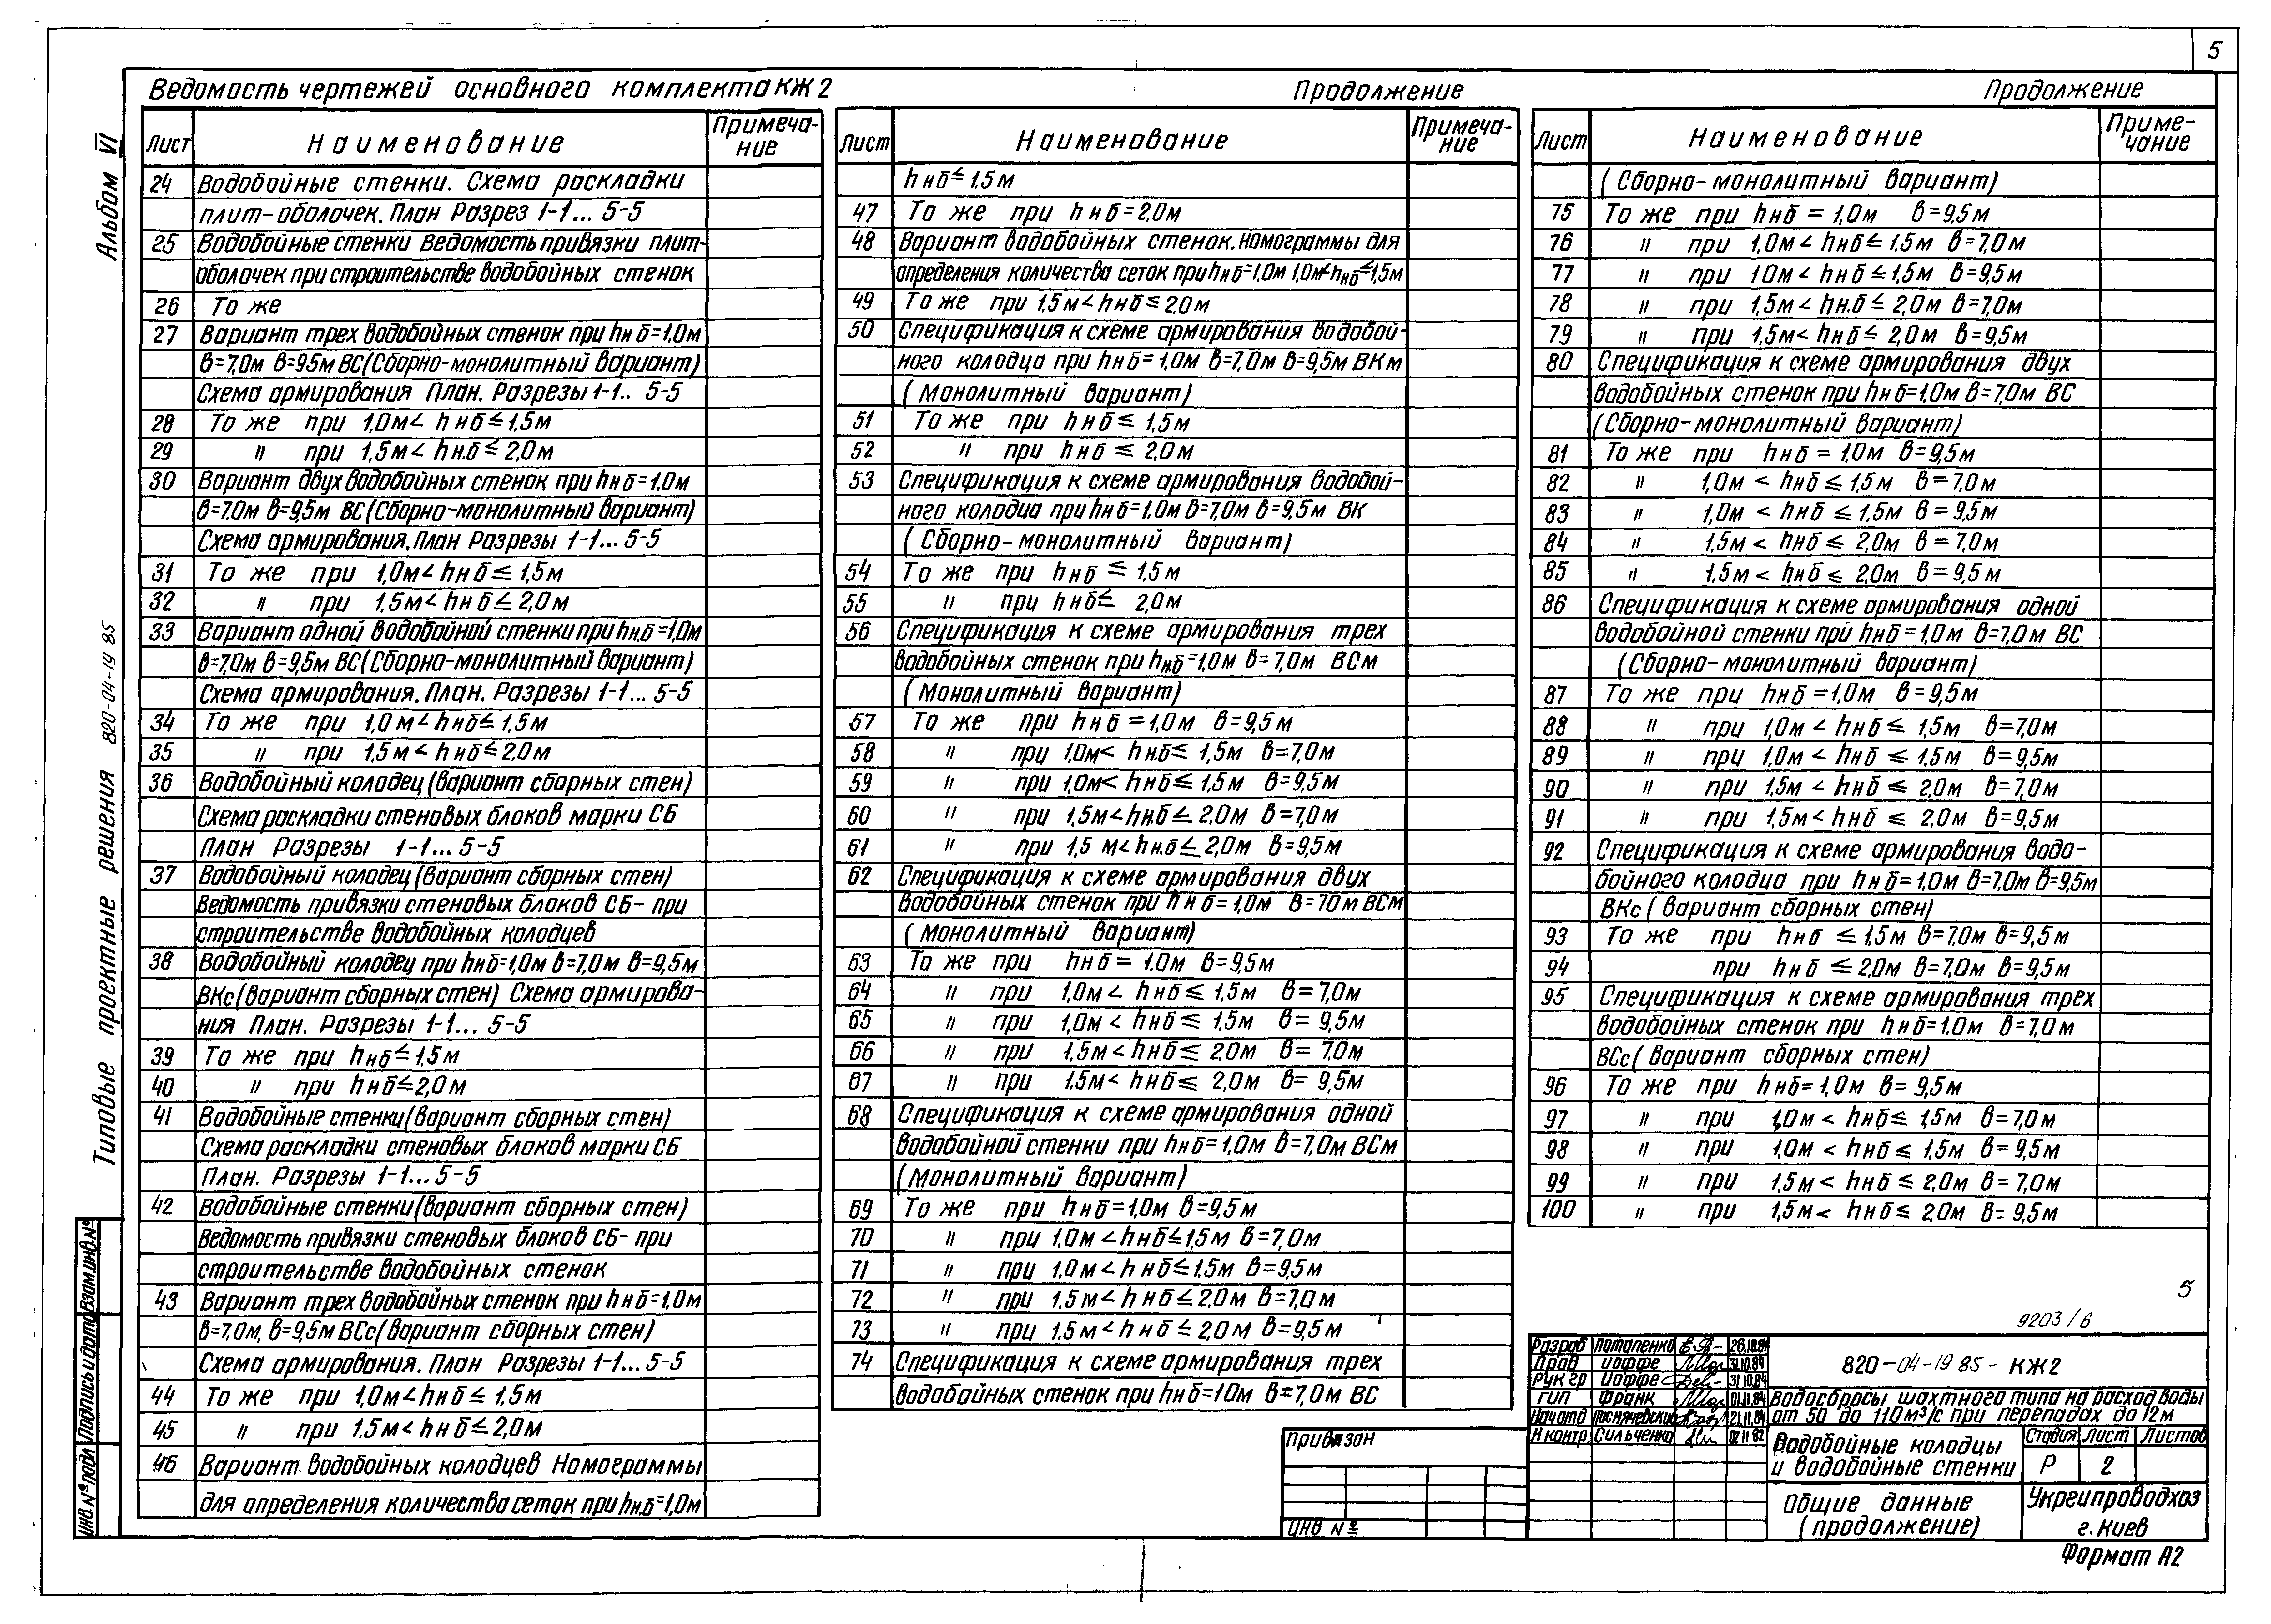 5
Ведомость чертежей основного комплекта КЖ2
Лист Наименование Примеча-
ние
24 Водобойные стенки. Схема раскладки
плит-оболочек. План Разрез 1-1... 5-5
25 Водобойные стенки Ведомость привязки плит-
оболочек при строительстве водобойных стенок
26 То же
27 Вариант трех водобойных стенок при hнб=1,0м
в=7,0м в=9,5м ВС(Сборно-монолитный вариант)
Схема армирования План. Разрезы 1-1.. 5-5
28 То же при 1,0м< hнб≤1,5м
29 " при 1,5м< hн.б≤2,0м
30 Вариант двух водобойных стенок при hнб=1,0м
в=7,0м в=9,5м ВС(Сборно-монолитный вариант)
Схема армирования. План Разрезы 1-1... 5-5
31 То же при 1,0м< hнб≤ 1,5м
32 " при 1,5м< hнб≤ 2,0м
33 Вариант одной водобойной стенки при hн.б=1,0м
в=7,0м в=9,5м ВС(Сборно-монолитный вариант)
Схема армирования. План. Разрезы 1-1... 5-5
34 То же при 1,0м< hнб≤ 1,5м
35 " при 1,5м< hнб≤2,0м
36 Водобойный колодец (вариант сборных стен)
Схема раскладки стеновых блоков марки СБ
План Разрезы 1-1... 5-5
37 Водобойный колодец (вариант сборных стен)
Ведомость привязки стеновых блоков СБ- при
строительстве водобойных колодцев
38 Водобойный колодец при hнб=1,0м в=7,0м в=9,5м
ВКс(вариант сборных стен) Схема армирова-
ния План. Разрезы 1-1... 5-5
39 То же при hнб≤1,5м
40 " при hнб≤2,0м
41 Водобойные стенки(вариант сборных стен)
Схема раскладки стеновых блоков марки СБ
План. Разрезы 1-1... 5-5
42 Водобойные стенки(вариант сборных стен)
Ведомость привязки стеновых блоков СБ- при
строительстве водобойных стенок
43 Вариант трех водобойных стенок при hнб=1,0м
в=7,0м, в=9,5м ВСс(вариант сборных стен)
Схема армирования. План Разрезы 1-1... 5-5
44 То же при 1,0м<hнб≤ 1,5м
45 " при 1.5м< hнб≤2,0м
46 Вариант водобойных колодцев Номограммы
для определения количества сеток при hн.б=1,0м
Продолжение
Лист Наименование Примеча-
ние
hнб≤ 1,5м
47 То же при hнб=2,0м
48 Вариант водобойных стенок. Номограммы для
определения количества сеток при hнб=1,0м 1,0м<hнб≤1,5м
49 То же при 1,5м< hнб≤2,0м
50 Спецификация к схеме армирования водобой-
ного колодца при hнб=1,0м в=7,0м в=9,5м ВКм
(Монолитный вариант)
51 То же при hнб≤ 1,5м
52 " при hнб ≤ 2,0м
53 Спецификация к схеме армирования водобой-
ного колодца при hнб=1,0м в=7,0м в=9,5м ВК
(Сборно-монолитный вариант)
54 То же при hнб ≤ 1,5м
55 " при hнб≤ 2,0м
56 Спецификация к схеме армирования трех
водобойных стенок при hн.б=1,0м в=7,0м ВСм
(Монолитный вариант)
57 То же при hнб=1,0м в=9,5м
58 " при 1,0м< hн.б≤ 1,5м в=7,0м
59 " при 1,0м< hнб≤ 1,5м в=9,5м
60 " при 1,5м<hн.б≤ 2,0м в=7,0м
61 " при 1,5 м< hн.б≤ 2,0м в=9,5м
62 Спецификация к схеме армирования двух
водобойных стенок при hнб=1,0м в=70м ВСм
(Монолитный вариант)
63 То же при hнб= 1.0м в=9,5м
64 " при 1,0м< hнб≤ 1,5м в=7,0м
65 " при 1,0м< hнб≤ 1,5м в= 9,5м
66 " при 1,5м< hнб≤ 2,0м в= 7,0м
67 " при 1,5м< hнб≤ 2,0м в= 9,5м
68 Спецификация к схеме армирования одной
водобойной стенки при hнб=1,0м в=7,0м ВСм
(Монолитный вариант)
69 То же при hнб=1,0м в=9,5м
70 " при 1,0м<hнб≤1,5м в=7,0м
71 " при 1,0м<hнб≤1,5м в=9,5м
72 " при 1,5м<hнб≤2,0м в=7,0м
73 " при 1,5м<hнб≤2,0м в=9,5м
74 Спецификация к схеме армирования трех
водобойных стенок при hнб=10м в=7,0м ВС
Продолжение
Лист Наименование Приме-
чание
(Сборно-монолитный вариант)
75 То же при hнб=1,0м в=9,5м
76 " при 1,0м< hнб≤ 1,5м в=7,0м
77 " при 10м< hнб≤1,5м в=9,5м
78 " при 1,5м< hн.б≤ 2,0м в=7,0м
79 " при 1,5м< hнб≤ 2,0м в=9,5м
80 Спецификация к схеме армирования двух
водобойных стенок при hнб=1,0м в=7,0м ВС
(Сборно-монолитный вариант)
81 То же при hнб= 1,0м в=9,5м
82 " 1,0м < hнб≤ 1,5м в=7,0м
83 " 1,0м < hнб ≤ 1,5м в=9,5м
84 " 1,5м < hнб≤ 2,0м в=7,0м
85 " 1,5м < hнб≤ 2,0м в=9,5м
86 Спецификация к схеме армирования одной
водобойной стенки при hнб=1,0м в=7,0м ВС
(Сборно-монолитный вариант)
87 То же при hнб=1,0м в=9,5м
88 " при 1,0м < hнб≤ 1,5м в=7,0м
89 " при 1,0м < hнб ≤ 1,5м в=9,5м
90 " при 1,5м < hнб ≤ 2,0м в=7,0м
91 " при 1,5м < hнб ≤ 2,0м в=9,5м
92 Спецификация к схеме армирования водо-
бойного колодца при hнб=1,0м в=7,0м в=9,5м
ВКс (вариант сборных стен)
93 То же при hнб ≤1,5м в=7,0м в=9,5м
94 при hнб ≤2,0м в=7,0м в=9,5м
95 Спецификация к схеме армирования трех
водобойных стенок при hнб=1.0м в=7,0м
ВСс(вариант сборных стен)
96 То же при hнб=1,0м в= 9,5м
97 " при 1,0м < hнб≤ 1,5м в=7,0м
98 " при 1,0м < hнб≤ 1,5м в= 9,5м
99 " при 1,5м < hнб≤ 2,0м в= 7,0м
100 " при 1,5м< hнб≤ 2,0м в= 9,5м
Альбом VI
Типовые проектные решения 820-04-19 85
Взам.инв.№
Подпись и дата
инв.№ подл
5
9203/6
Разраб Потапенко 26.10.84
Пров Иоффе 31.10.84
Рук гр Иоффе 31 10.84
ГИП Франк 01.11.84
Нач отд 21.11.84
Н контр Сильченко 02 11 82
820-04-19 85 - КЖ2
Водосбросы шахтного типа на расход воды
от 50 до 110м³/с при перепадах до 12м
Водобойные колодцы
и водобойные стенки
Стадия Лист Листов
Р 2
Общие данные
(продолжение)
Укргипроводхоз
г. Киев
Привязан
ИНВ №
Формат А2